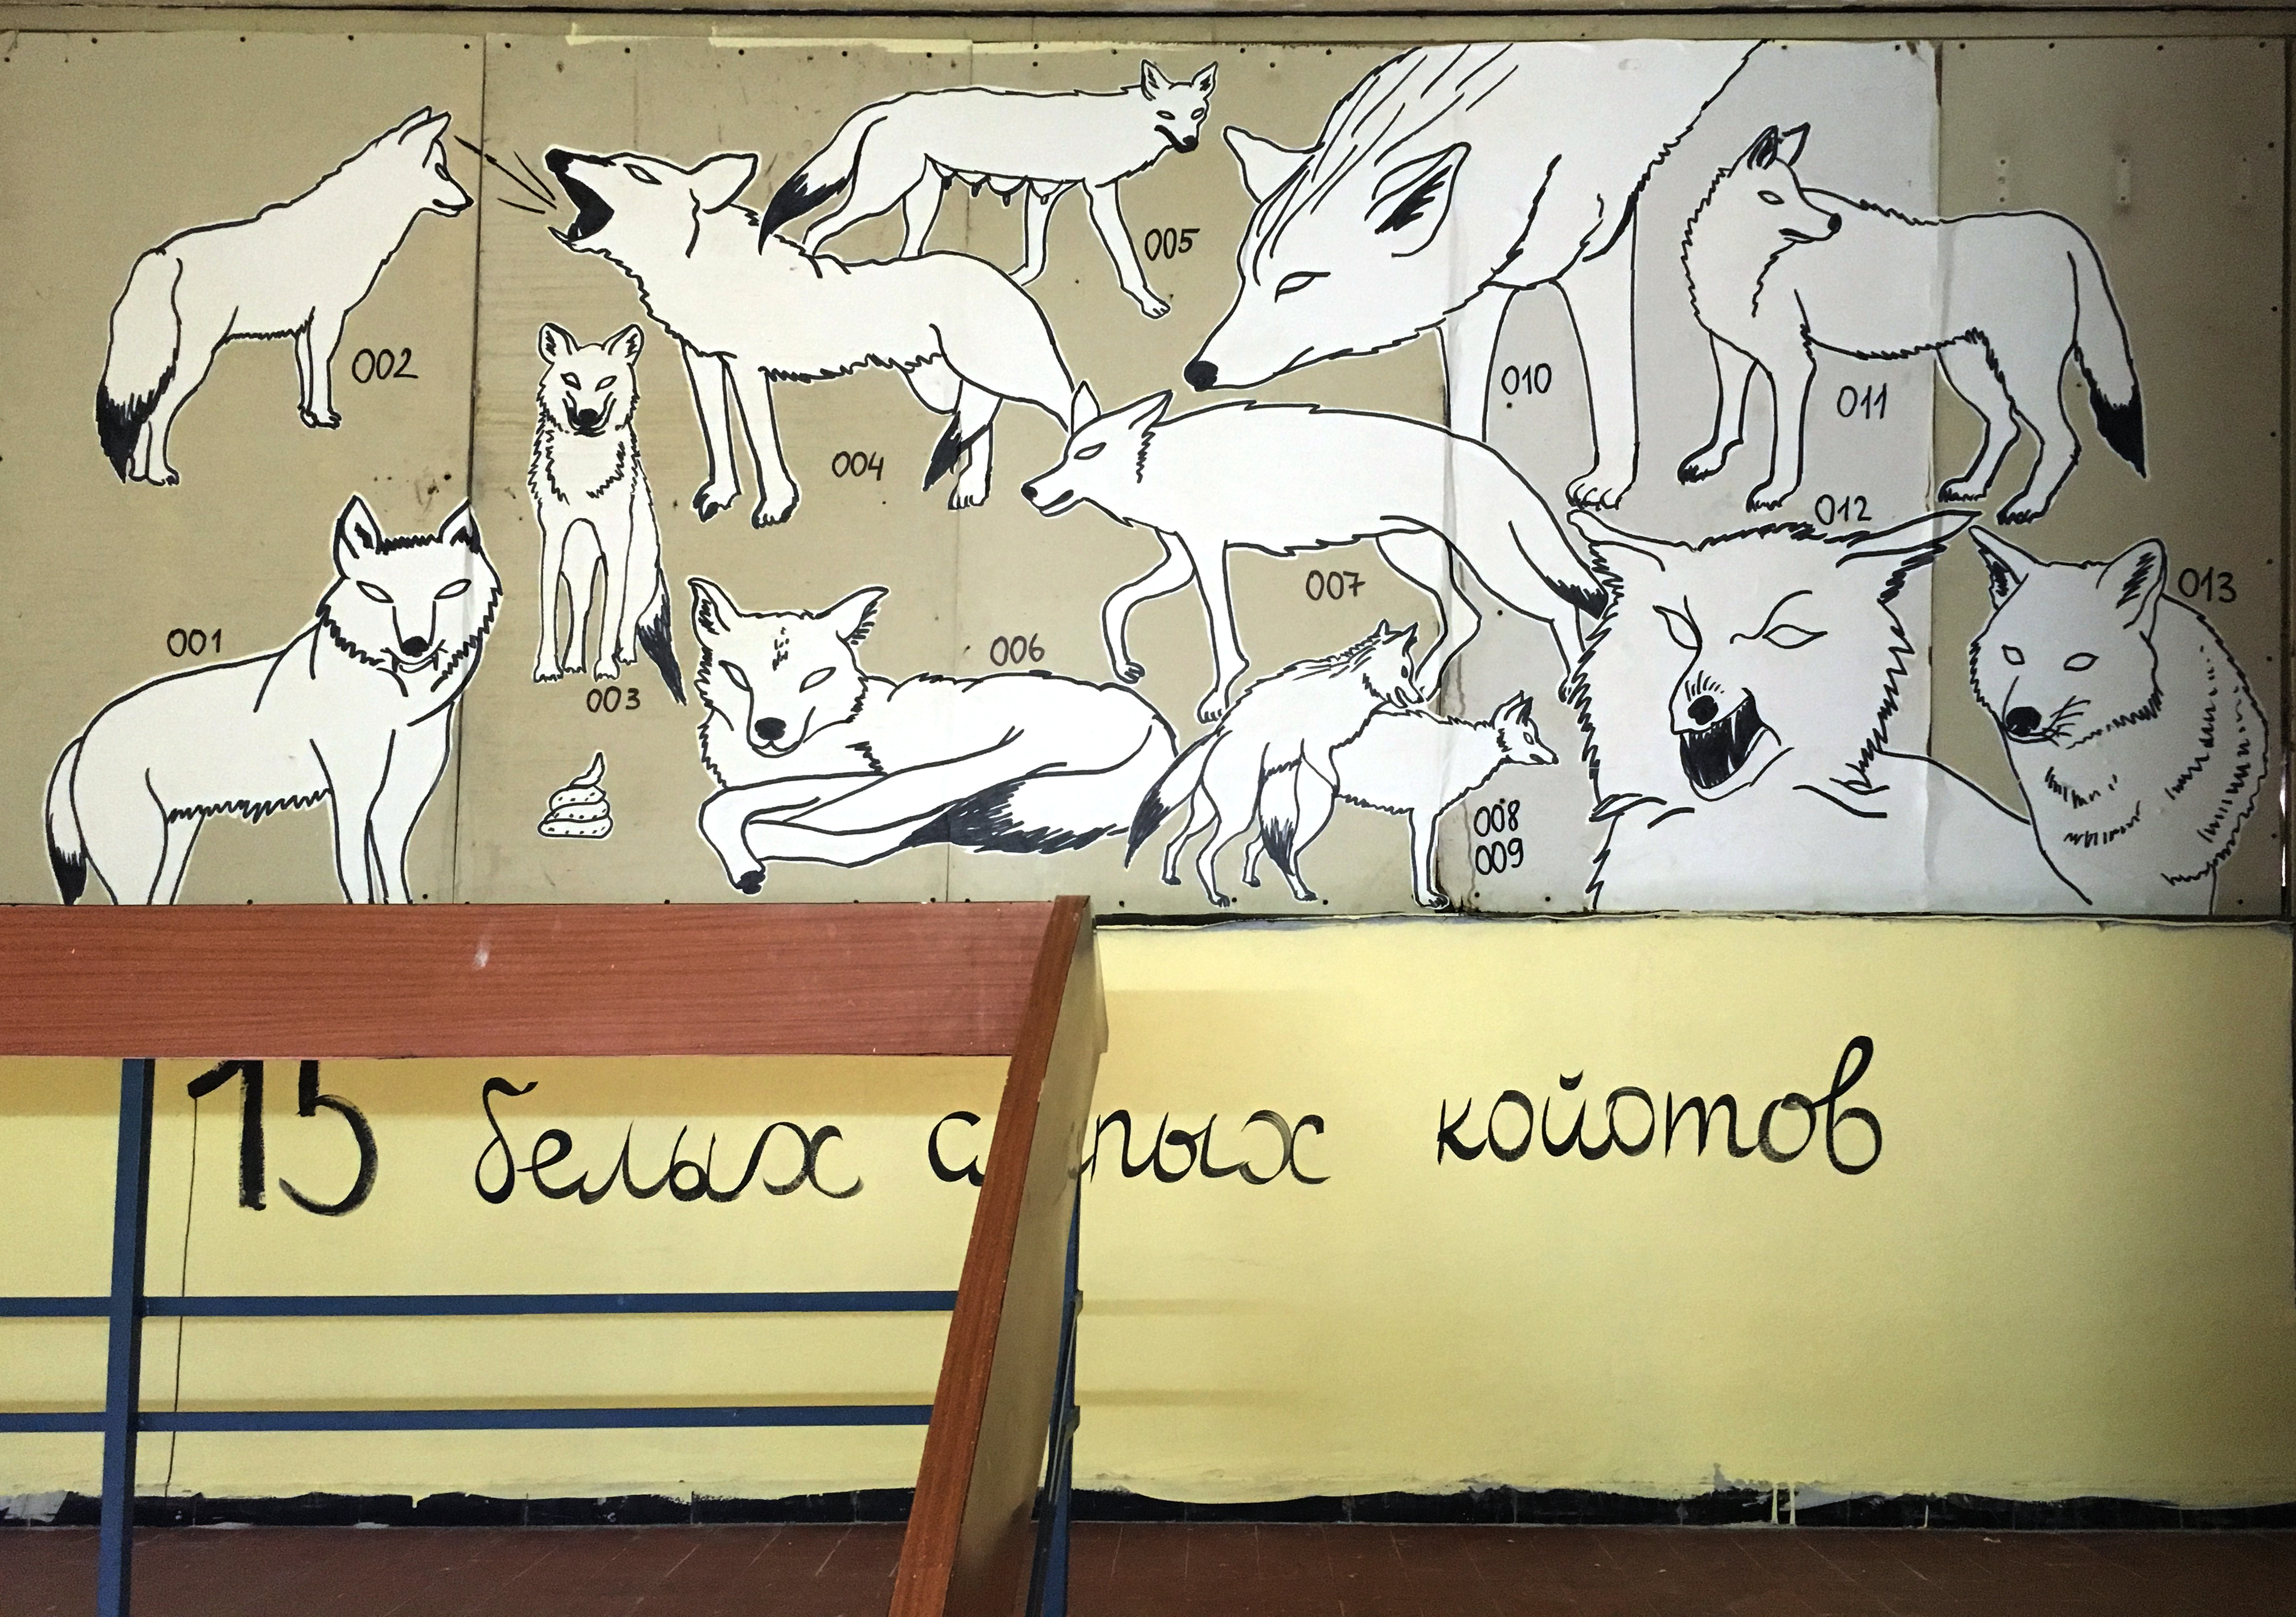 005
002
010
011
004
012
007
013
001
006
003
008
009
15 белых слепых койотов